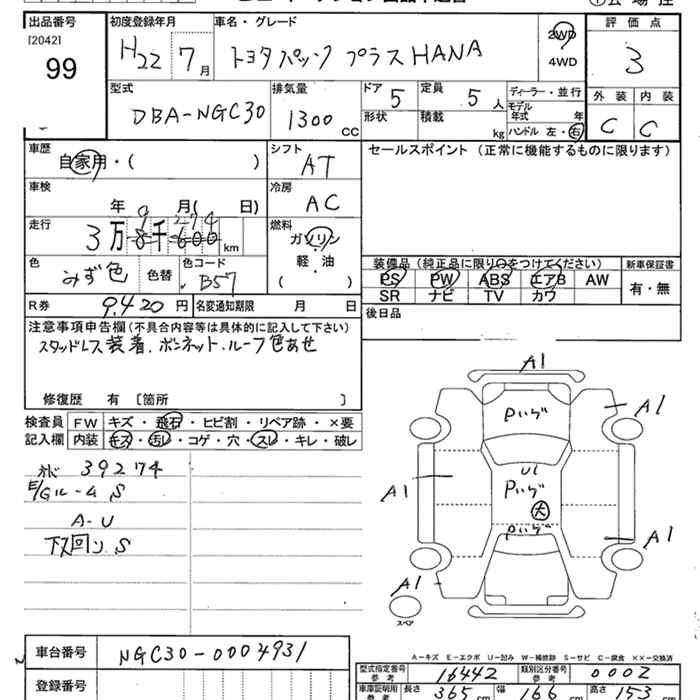 出品番号
[2042]
99
初度登録年月
H22 7月
車名・グレード
トヨタパッソ プラスHANA
2WD
4WD
評価点
3
型式
DBA-NGC30
排気量
1300 CC
ドア 5
定員 5人
形状
積載 kg
ディーラー・並行
モデル年式 年
ハンドル 左・右
外装 内装
C C
車歴
自家用・( )
シフト
AT
セールスポイント (正常に機能するものに限ります)
車検
年 月( 日)
冷房
AC
走行
3万8千600km
9 274
燃料
ガソリン
・
軽・油
( )
色
みず色
色替
色コード
B57
装備品(純正品に限り○をつけてください)
PS PW ABS エアB AW
SR ナビ TV カワ
新車保証書
有・無
R券 9,420円
名変通知期限 月 日
後日品
注意事項申告欄(不具合内容等は具体的に記入して下さい)
スタッドレス装着.ボンネット.ルーフ色あせ
修復歴 有 [箇所 ]
検査員
記入欄
FW キズ・飛石・ヒビ割・リペア跡・×要
内装 キズ・汚レ・コゲ・穴・スレ・キレ・破レ
オド 39274
E/Gルーム S
A-U
下廻り S
A1
A1
A1
A1
A1
U1
大
スペア
A-キズ E-エクボ U-凹み W-補修跡 S-サビ C-腐食 ××-交換済
車台番号
NGC30-0004931
登録番号
型式指定番号
参考
16442
類別区分番号
参考
0002
車庫証明用
参考
長さ 365cm 幅 166cm 高さ 153cm